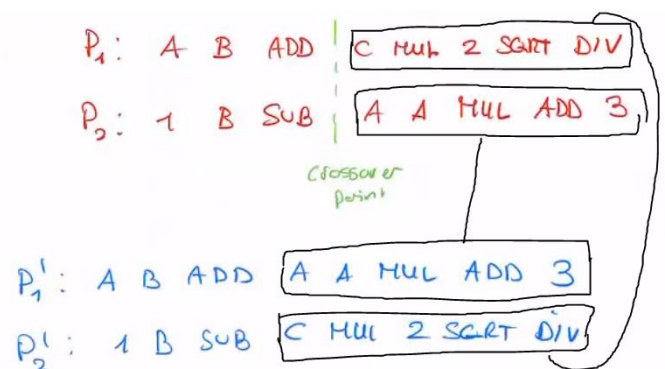 P₁: A B ADD C MUL 2 SQRT DIV
P₂: 1 B SUB A A MUL ADD 3
Crossover
point
P₁': A B ADD A A MUL ADD 3
P₂': 1 B SUB C MUL 2 SQRT DIV